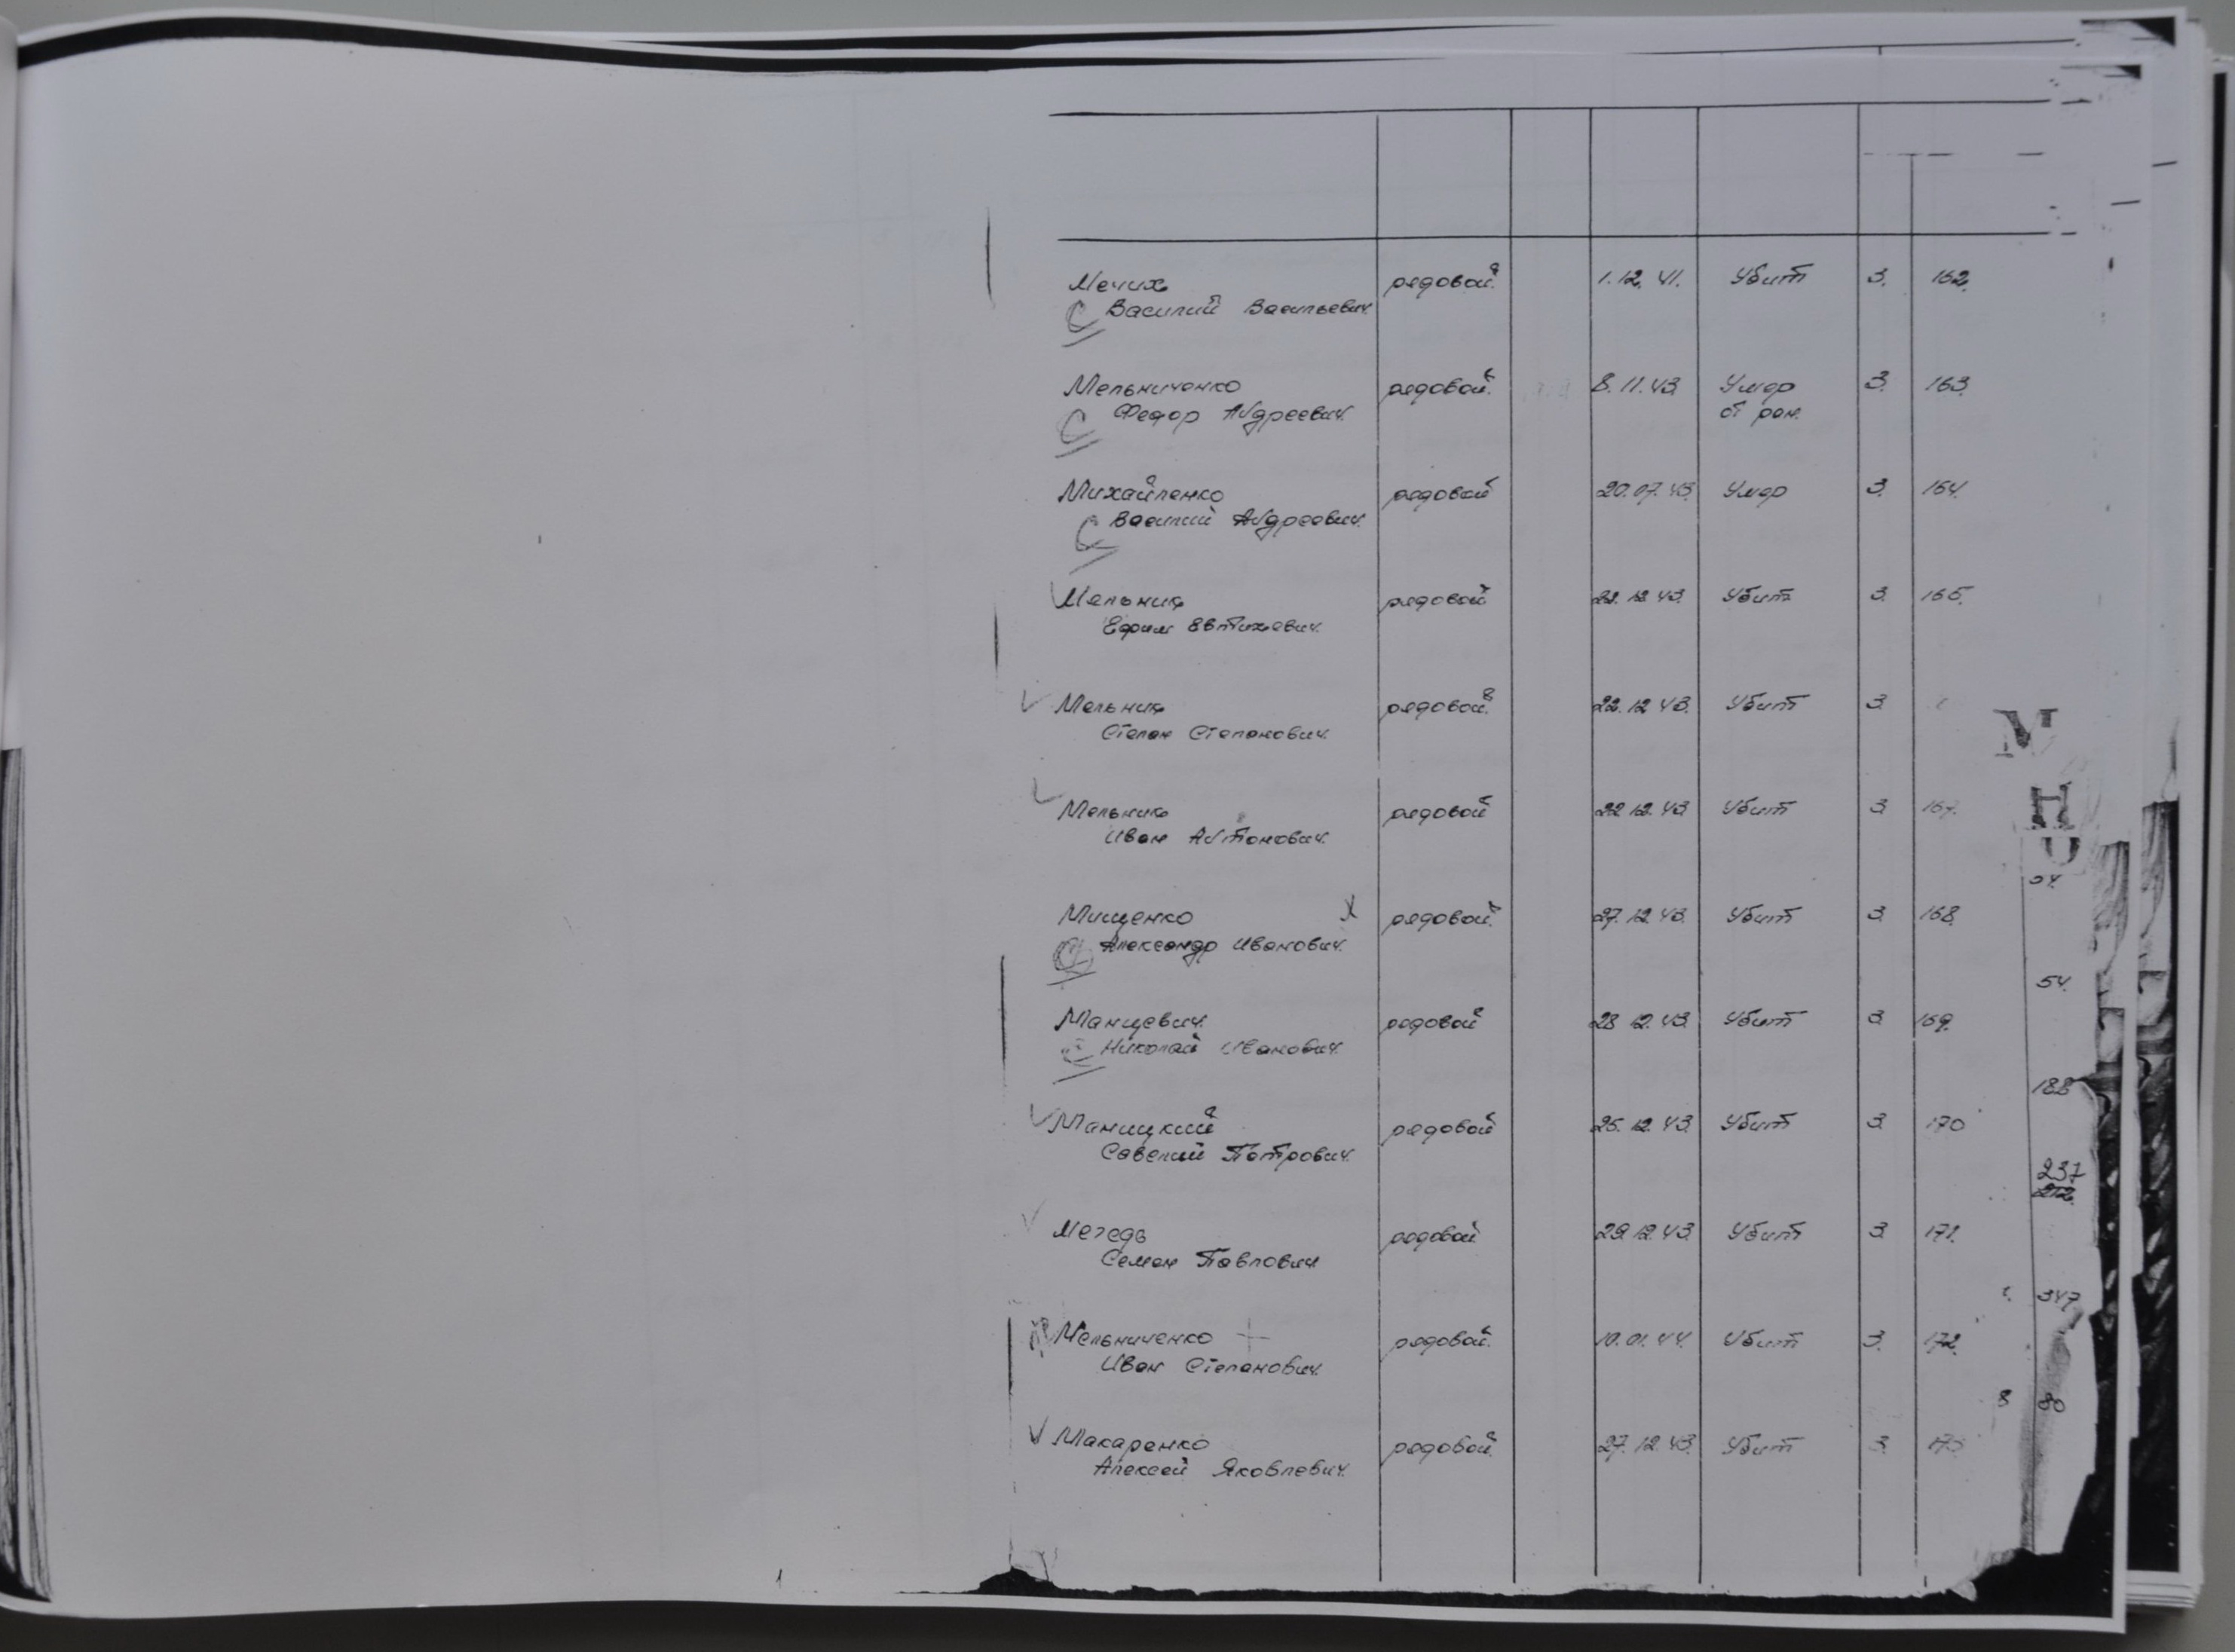 Мечих рядовой 1.12.41. Убит 3. 162.
С Василий Васильевич.
Мельниченко рядовой. 8.11.43. Умер 3. 163.
С Федор Андреевич. от ран.
Михайленко рядовой 20.07.43. Умер 3. 164.
С Василий Андреевич.
Мельник рядовой 22.12.43. Убит 3. 165.
Ефим Евтихевич.
Мельник рядовой. 22.12.43. Убит 3.
Степан Степанович.
М
Мельник рядовой 22.12.43 Убит 3. 167.
Н
Иван Антонович.
О
54.
Мищенко рядовой. 27.12.43. Убит 3. 168.
С Александр Иванович.
54.
Манцевич. рядовой 28.12.43. Убит 3. 169.
С Николай Иванович.
188
Маницкий рядовой 25.12.43. Убит 3. 170
Савелий Петрович.
237
212.
Мегедь рядовой 29.12.43. Убит 3. 171.
Семен Павлович
347
Мельниченко рядовой. 10.01.44. Убит 3. 172.
Иван Степанович.
8 80
Макаренко рядовой. 27.12.43. Убит 3. 173
Алексей Яковлевич.